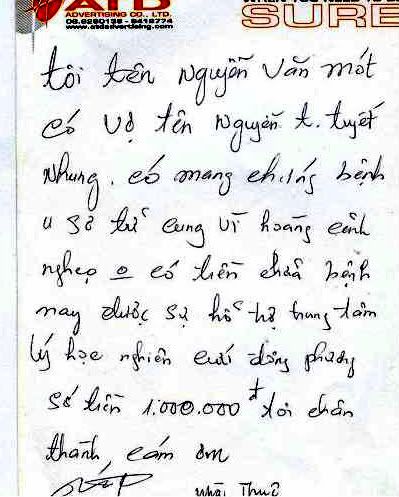 ATD
ADVERTISING CO., LTD
www.atdadvertising.com
SURE
tôi tên Nguyễn Văn một
có vợ tên Nguyễn t. tuyết
Nhung. có mang chứng bệnh
u sơ tử cung vì hoàng cảnh
nghèo o có tiền chữa bệnh
nay được sự hỗ trợ trung tâm
lý học nghiên cứu đông phương
số tiền 1.000.000 đ tôi chân
thành cám ơn